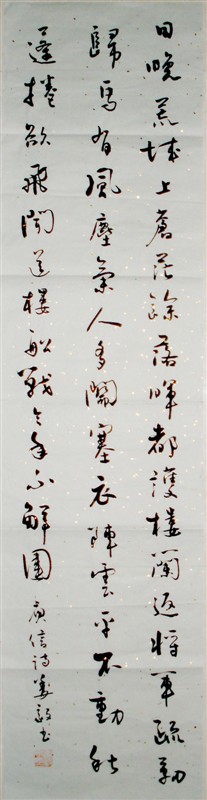 日晚荒城上蒼茫餘落暉都護樓闌返將軍疏勒
歸馬有風塵氣人多關塞衣陣雲平不動秋
蓬捲欲飛聞道樓船戰今年不解圍
庾信詩 書